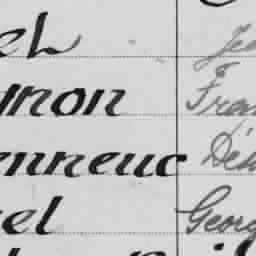 el Jea
gnon Fran
enneuc Dés
el Georg